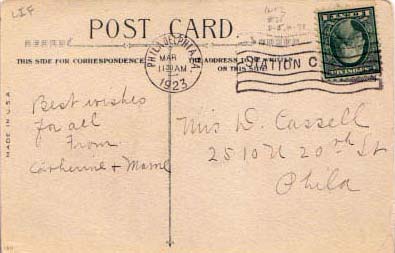 POST CARD
THIS SIDE FOR CORRESPONDENCE
THE ADDRESS TO BE
ON THIS
PHILADELPHIA, PA.
MAR
11 AM
1923
STATION C
Best wishes
for all
from
Catherine + Mame
D. Cassell
2510 N 20th St
Phila
MADE IN U.S.A.